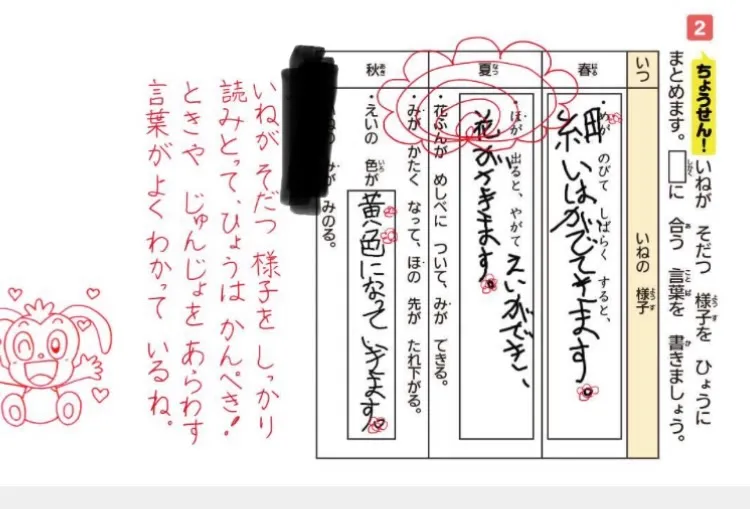 2
ちょうせん！ いねが そだつ 様子を ひょうに
まとめます。□に 合う 言葉を 書きましょう。
いつ
いねの 様子
春
・めが のびて しばらく すると、
細いはがでてきます。
夏
・ほが 出ると、やがて えいができ、
花がさきます。
・花ふんが めしべに ついて、みが できる。
・みが かたく なって、ほの 先が たれ下がる。
秋
・えいの 色が 黄色になっていきます。
みのる。
いねが そだつ 様子を しっかり
読みとって、ひょうは かんぺき！
ときや じゅんじょを あらわす
言葉が よく わかって いるね。